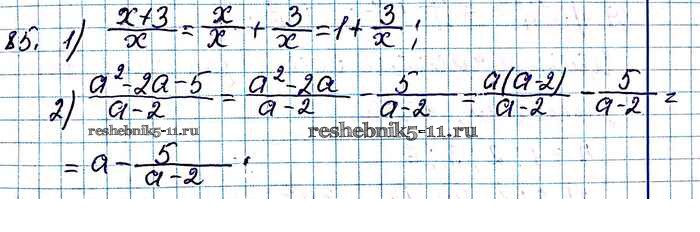 85. 1) (x+3)/x = x/x + 3/x = 1 + 3/x;
2) (a²-2a-5)/(a-2) = (a²-2a)/(a-2) - 5/(a-2) = a(a-2)/(a-2) - 5/(a-2) =
reshebnik5-11.ru reshebnik5-11.ru
= a - 5/(a-2).